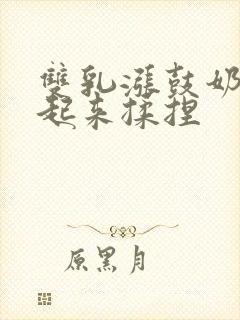 雙乳漲鼓奶
起来揉捏
原黑月